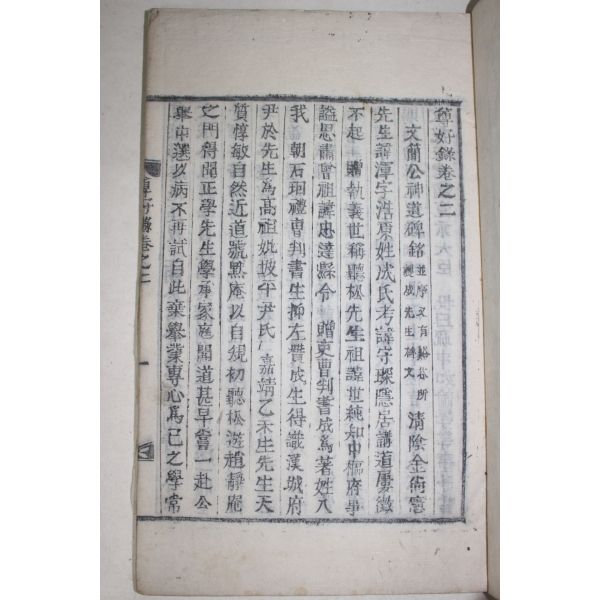 章好錄卷之二
文簡公神道碑銘 並序又有谿谷所撰成先生碑文 清陰金尙憲
先生諱渾字浩原姓成氏考諱守琛隱居講道屢徵
不起 贈執義世稱聽松先生祖諱世純知中樞府事
諡思肅曾祖諱忠達縣令 贈吏曹判書成爲著姓入
我 朝石珚禮曹判書生抑左贊成生得識漢城府
尹於先生爲高祖妣坡平尹氏 嘉靖乙未生先生天
質惇敏自然近道號默庵以自規初聽松遊趙靜庵
之門得聞正學先生學承家庭聞道甚早嘗一赴公
擧中選以病不再試自此棄擧業專心爲己之學常
章好錄卷之二
一